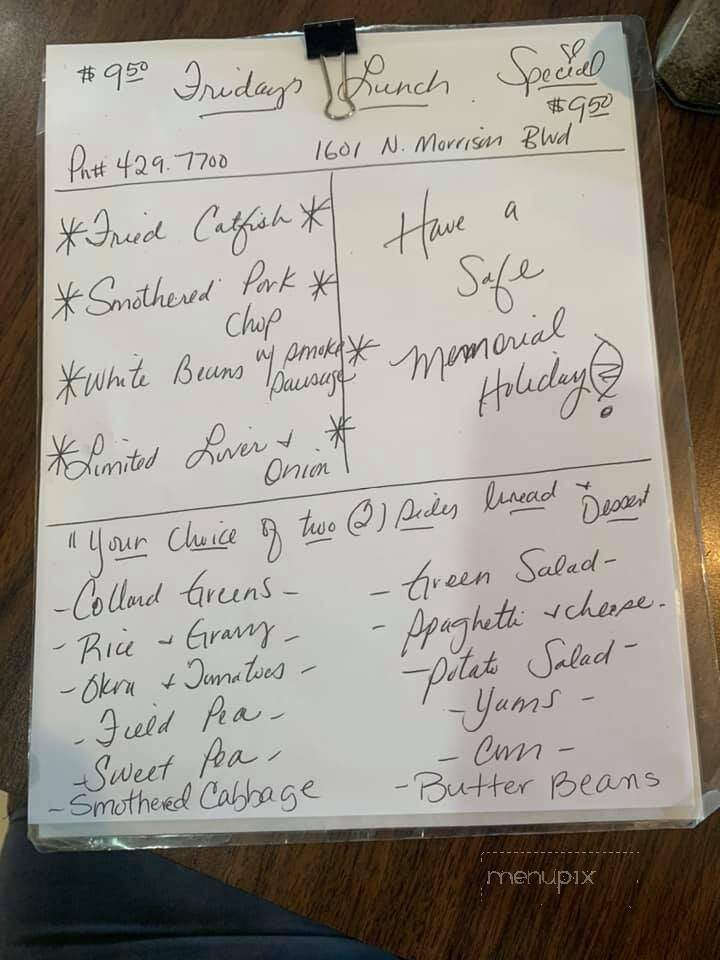 $9.50 Fridays Lunch Special
$9.50
Pn# 429.7700 1601 N. Morrison Blvd
*Fried Catfish*
*Smothered Pork *
Chop
*White Beans w/ Smoke *
Sausage
*Limited Liver + *
Onion
Have a
Safe
Memorial
Holiday!
"Your Choice of two (2) Sides bread + Dessert
-Collard Greens-
-Rice + Gravy-
-Okra + Tomatoes-
-Field Pea-
-Sweet Pea-
-Smothered Cabbage
-Green Salad-
-Spaghetti + cheese-
-Potato Salad-
-Yams-
-Corn-
-Butter Beans
menupix